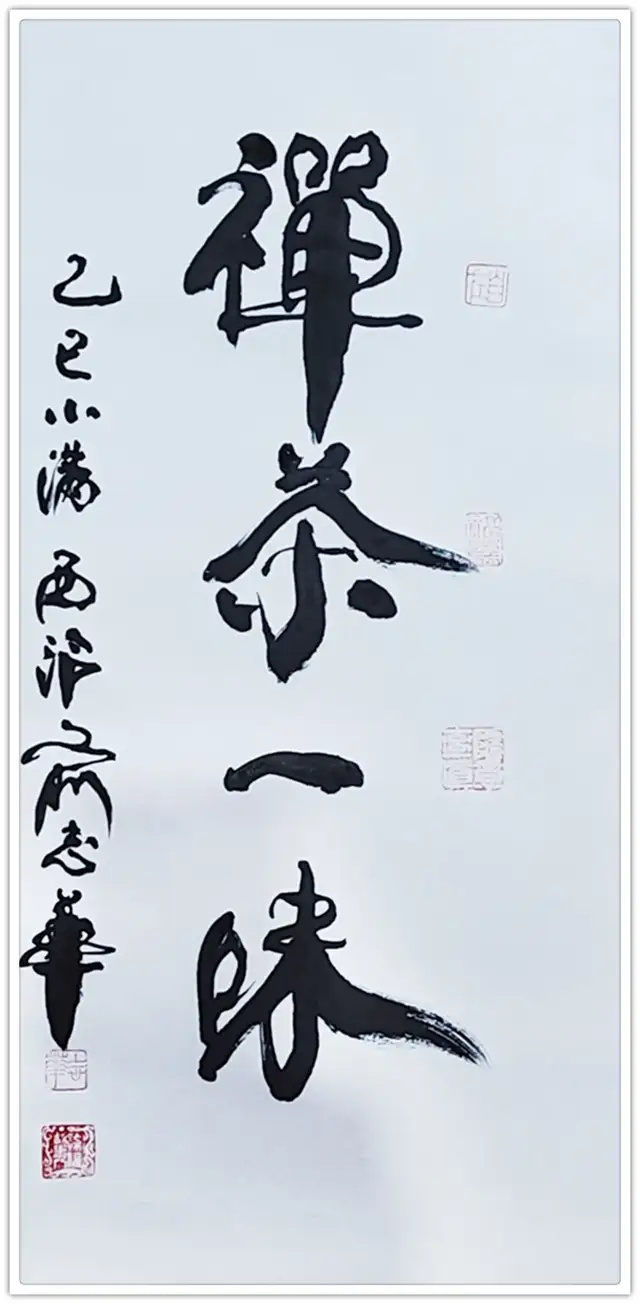 禪茶一味
乙巳小滿 西泠 志華